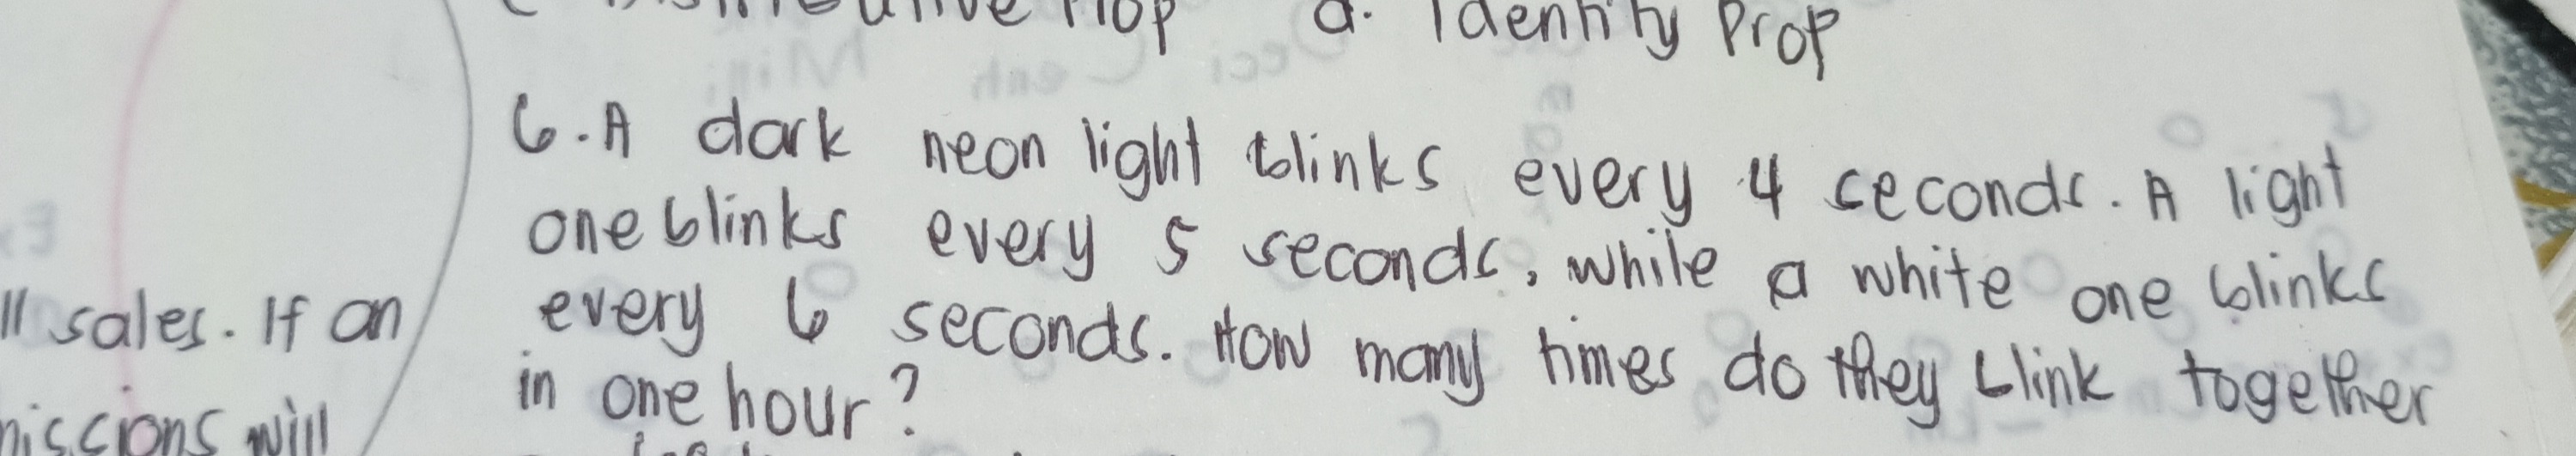 Prop d. Identity Prop
6. A dark neon light blinks every 4 seconds. A light
one blinks every 5 seconds, while a white one blinks
every 6 seconds. How many times do they blink together
in one hour?
ll sales. If an
will